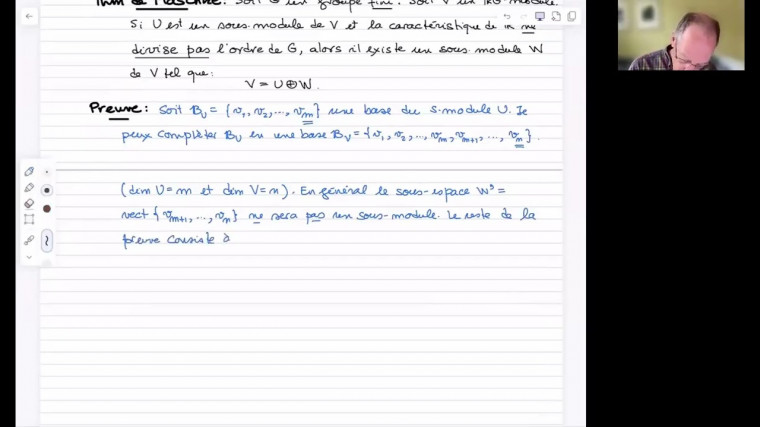 Thm de Maschke: Soit G un groupe fini. Soit V un kG-module.
Si U est un sous-module de V et la caractéristique de k ne
divise pas l'ordre de G, alors il existe un sous-module W
de V tel que:
V = U ⊕ W.
Preuve: Soit B_U = {v_1, v_2, ..., v_m} une base du s-module U. Je
peux compléter B_U en une base B_V = {v_1, v_2, ..., v_m, v_{m+1}, ..., v_n}.
(dim U = m et dim V = n). En général le sous-espace W^o =
vect {v_{m+1}, ..., v_n} ne sera pas un sous-module. Le reste de la
preuve consiste à